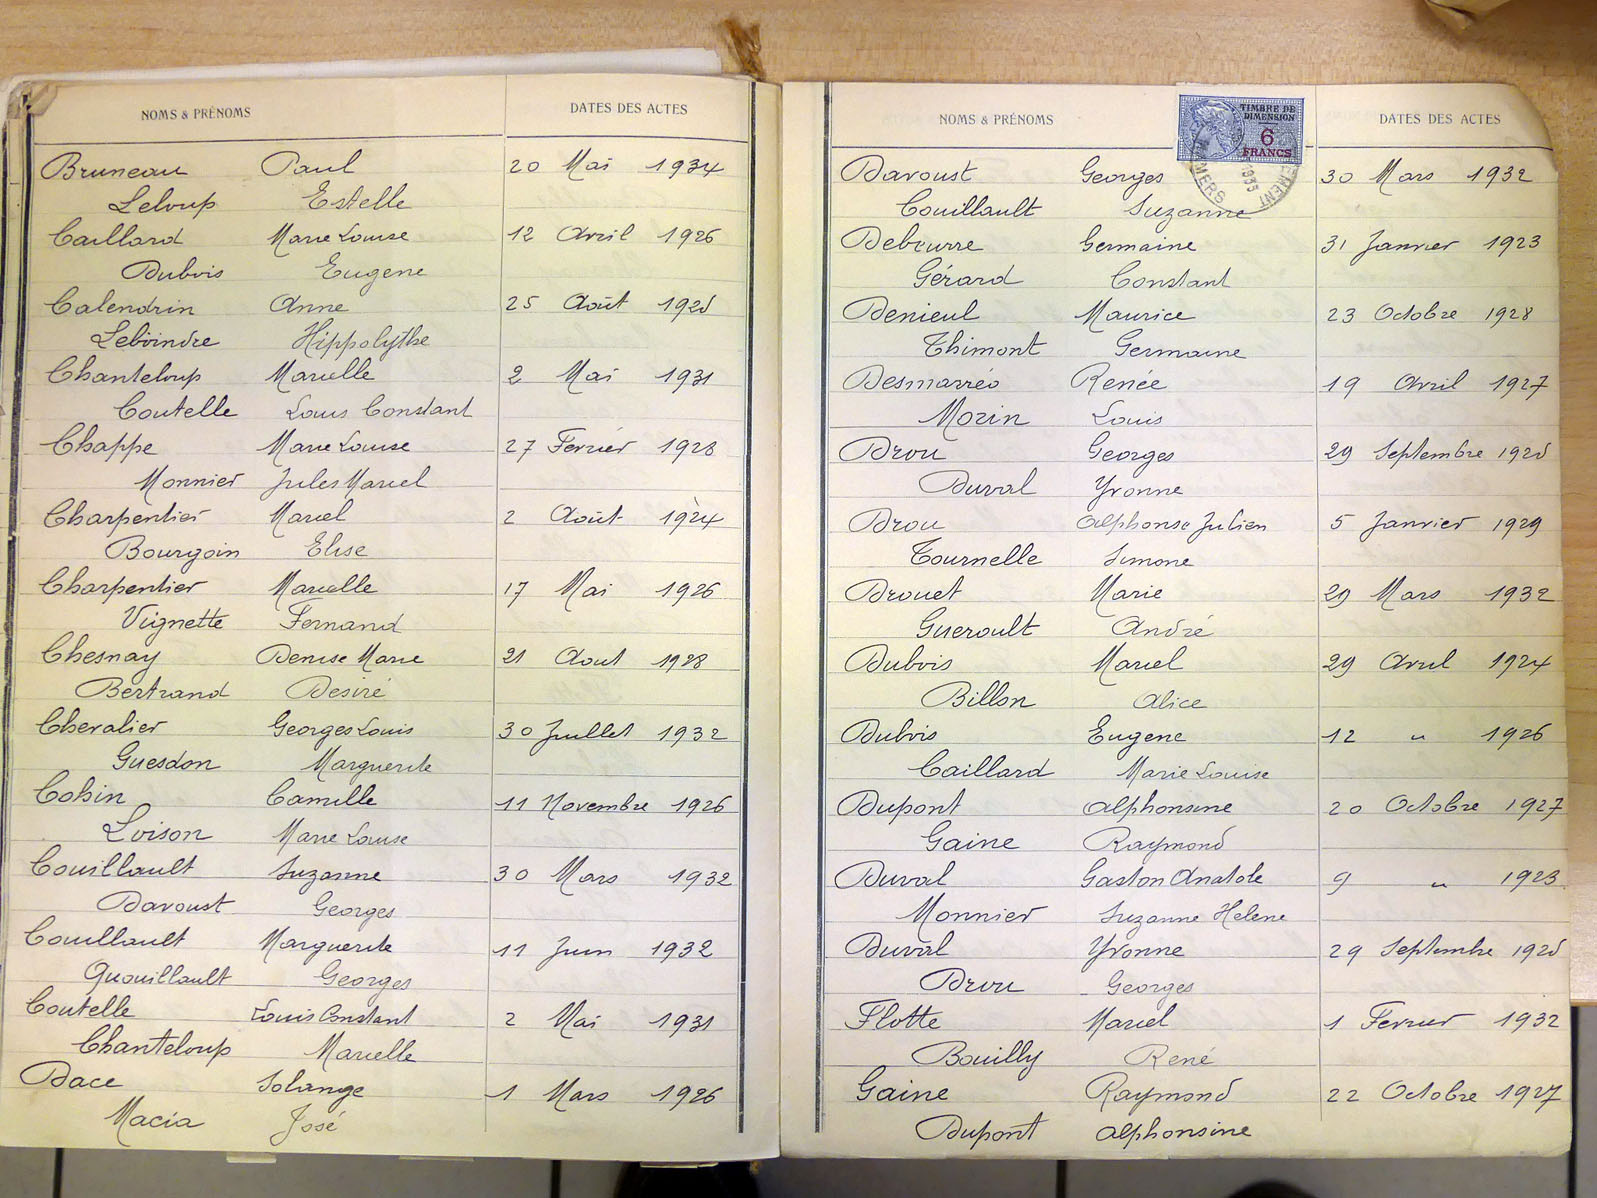 NOMS & PRÉNOMS DATES DES ACTES
Bruneau Paul 20 Mai 1934
Leloup Estelle
Caillard Marie Louise 12 Avril 1926
Dubois Eugene
Calendrin Anne 25 Août 1925
Leboindre Hippolythe
Chanteloup Marcelle 2 Mai 1931
Coutelle Louis Constant
Chappe Marie Louise 27 Fevrier 1928
Monnier Jules Marcel
Charpentier Marcel 2 Août 1924
Bourgoin Elise
Charpentier Marcelle 17 Mai 1926
Vignette Fernand
Chesnay Denise Marie 21 Aout 1928
Bertrand Desiré
Chevalier Georges Louis 30 Juillet 1932
Guesdon Marguerite
Cohin Camille 11 Novembre 1926
Loison Marie Louise
Couillault Suzanne 30 Mars 1932
Davoust Georges
Couillault Marguerite 11 Juin 1932
Quouillault Georges
Coutelle Louis Constant 2 Mai 1931
Chanteloup Marcelle
Dace Solange 1 Mars 1926
Macia José
NOMS & PRÉNOMS DATES DES ACTES
TIMBRE DE
DIMENSION
6
FRANCS
MAMERS 1935
Davoust Georges 30 Mars 1932
Couillault Suzanne
Debeurre Germaine 31 Janvier 1923
Gérard Constant
Denieul Maurice 23 Octobre 1928
Thimont Germaine
Desmarrés Renée 19 Avril 1927
Morin Louis
Drou Georges 29 Septembre 1925
Duval Yvonne
Drou Alphonse Julien 5 Janvier 1929
Tournelle Simone
Drouet Marie 29 Mars 1932
Gueroult André
Dubois Marcel 29 Avril 1924
Billon Alice
Dubois Eugene 12 " 1926
Caillard Marie Louise
Dupont Alphonsine 20 Octobre 1927
Gaine Raymond
Duval Gaston Anatole 9 " 1923
Monnier Suzanne Helene
Duval Yvonne 29 Septembre 1925
Drou Georges
Flotte Marcel 1 Fevrier 1932
Bouilly René
Gaine Raymond 22 Octobre 1927
Dupont Alphonsine